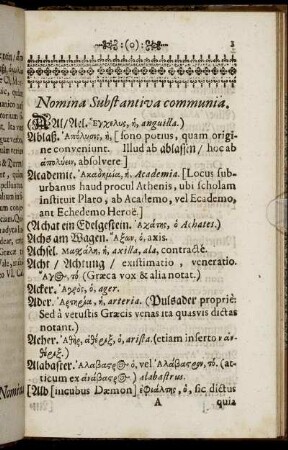 :(o):
3
Nomina Substantiva communia.
(AAl/ Ael. Ἔγχελυς, ἡ, anguilla.)
Ablaß. Ἀπόλυσις, ἡ, [sono potius, quam origi-
ne conveniunt. Illud ab ablassen / hoc ab
ἀπολύειν, absolvere.]
Academie. Ἀκαδημία, ἡ, Academia. [Locus sub-
urbanus haud procul Athenis, ubi scholam
instituit Plato, ab Academo, vel Ecademo,
ant Echedemo Heroë.]
(Achat ein Edelgestein. Ἀχάτης, ὁ Achates.)
Achs am Wagen. Ἄξων, ὁ, axis.
Achsel. Μασχάλη, ἡ, axilla, ala, contractè.
Acht / Achtung / existimatio, veneratio.
Ἄγος, τὸ (Græca vox & alia notat.)
Acker. Ἀγρὸς, ὁ, ager.
Ader. Ἀρτηρία, ἡ, arteria. (Pulsader propriè:
Sed à vetustis Græcis venas ita quasvis dictas
notant.)
Aeher. Ἀθὴρ, ἀθέριξ, ὁ, arista. (etiam inserto ν ἀν-
θήριξ.)
Alabaster. Ἀλάβαστρος ὁ, vel Ἀλάβαστρον, τὸ. (at-
ticum ex ἀνάβαστρος) alabastrus.
[Alb [incubus Dæmon] ἐφιάλτης, ὁ, sic dictus
A
quia